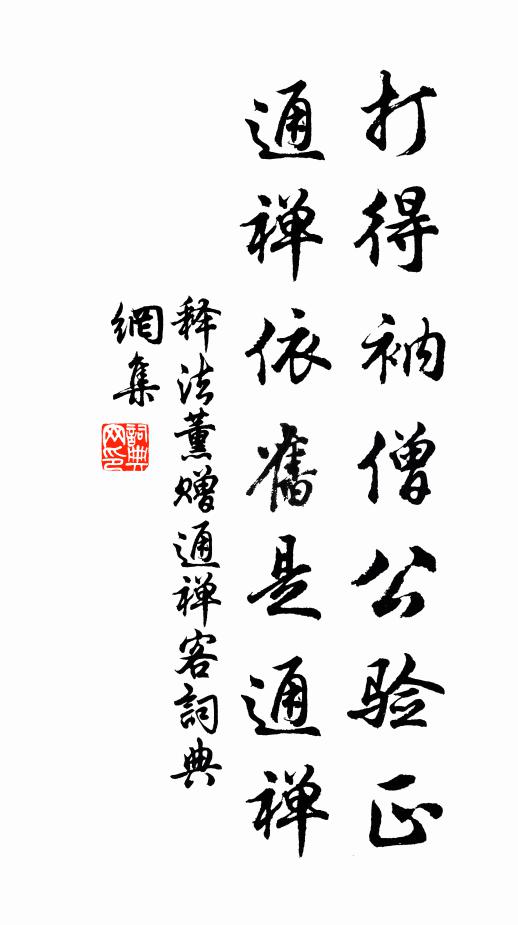 打得衲僧公验正
通禅依舊是通禅
释法薰赠通禅客詞典
網集
詞典網印